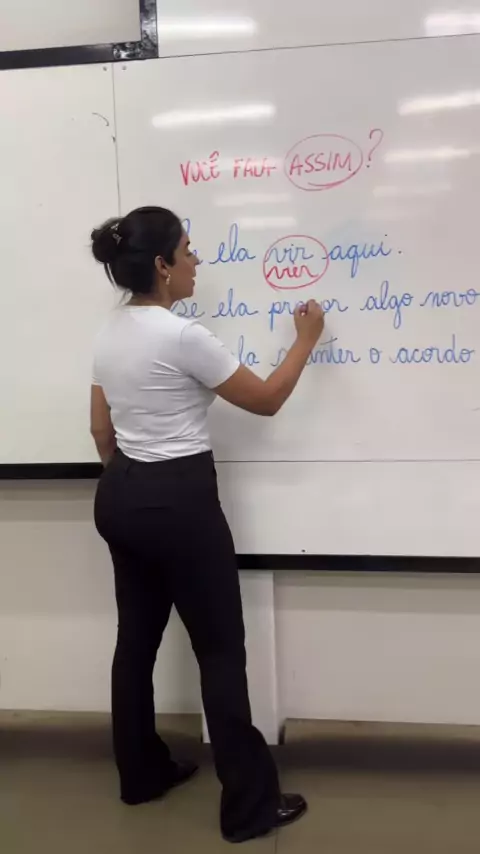 VOCÊ FALA ASSIM?
ela vir aqui.
ver
Se ela propor algo novo
manter o acordo